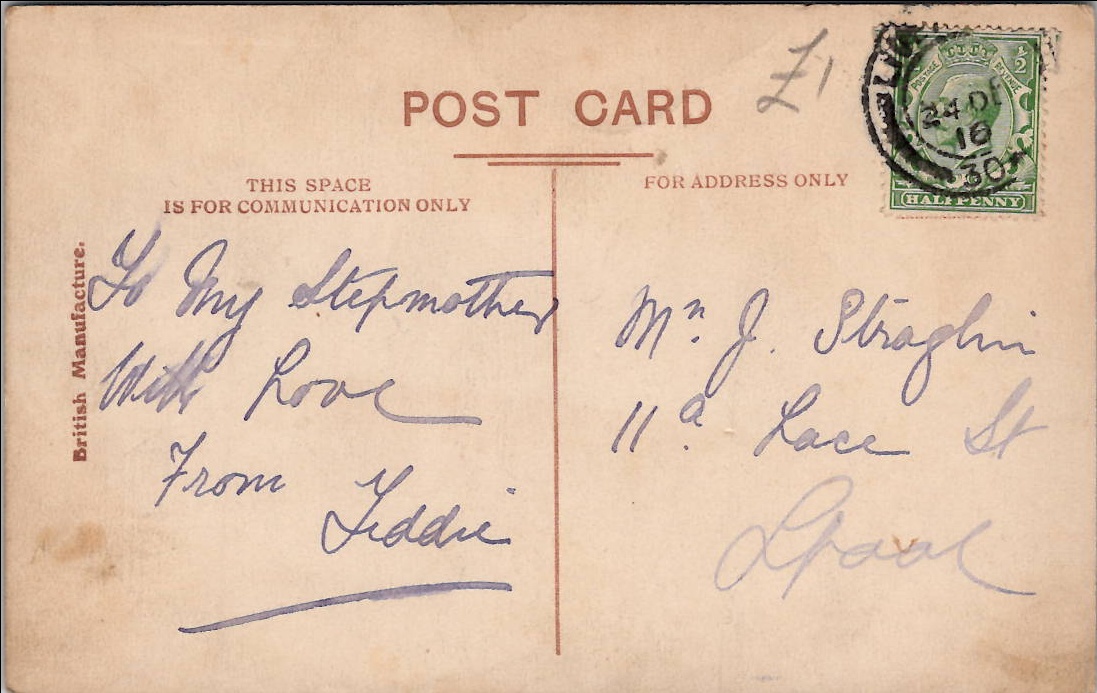 POST CARD
£1
THIS SPACE
IS FOR COMMUNICATION ONLY
FOR ADDRESS ONLY
British Manufacture.
To My Stepmother
With Love
From
Teddie
Mrs. J.
11a Lace St
Lpool
POSTAGE REVENUE
1/2
HALFPENNY
24 DE
16
30